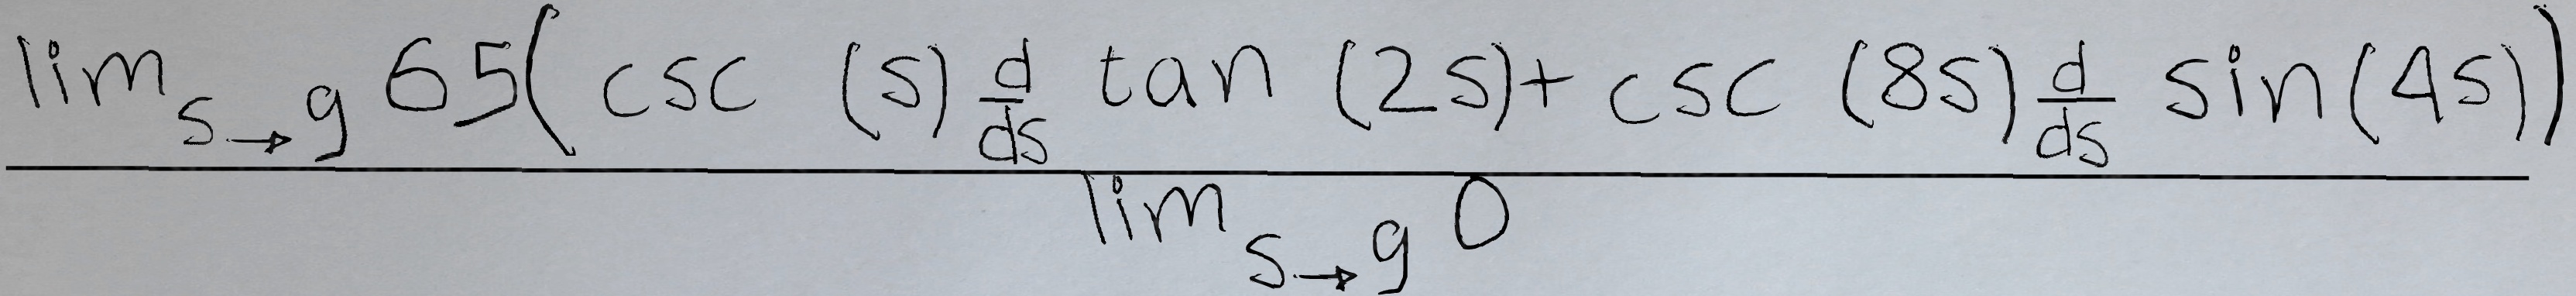 \frac{\lim_{s \to g} 65 \left( \csc (s) \frac{d}{ds} \tan (2s) + \csc (8s) \frac{d}{ds} \sin (4s) \right)}{\lim_{s \to g} 0}